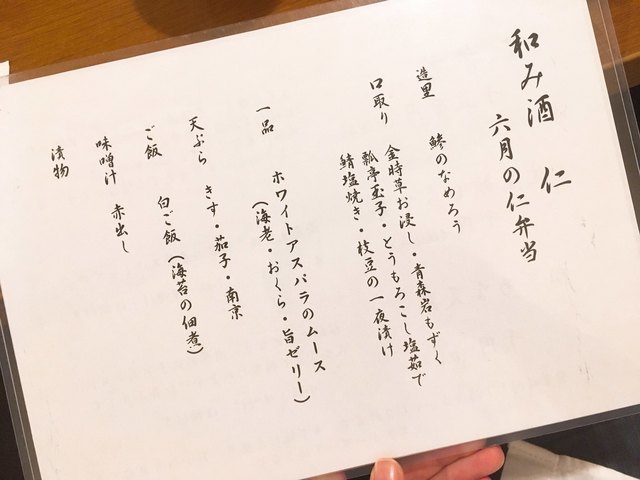 和み酒 仁
六月の仁弁当
造里 鯵のなめろう
口取り 金時草お浸し・青森岩もずく
瓢亭玉子・とうもろこし塩茹で
鯖塩焼き・枝豆の一夜漬け
一品 ホワイトアスパラのムース
(海老・おくら・旨ゼリー)
天ぷら きす・茄子・南京
ご飯 白ご飯(海苔の佃煮)
味噌汁 赤出し
漬物